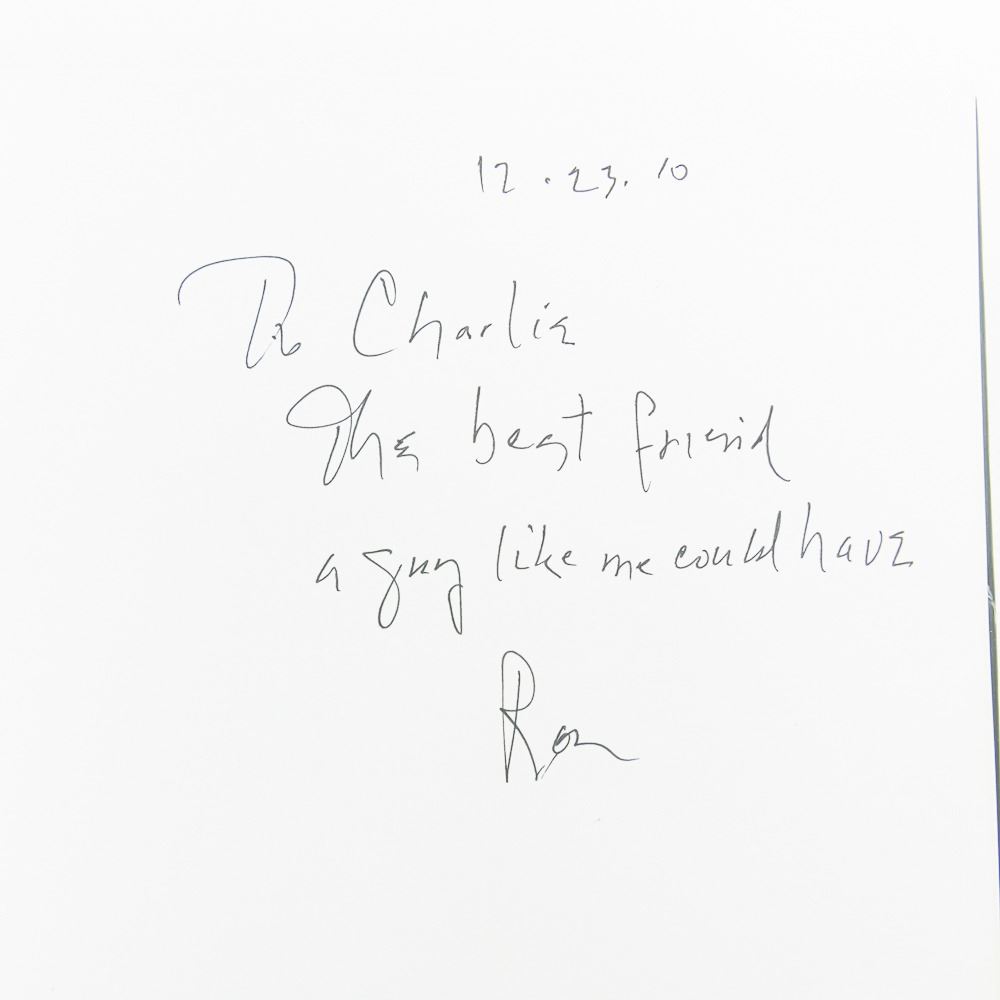 12.23.10
To Charlie
The best friend
a guy like me could have
Ron